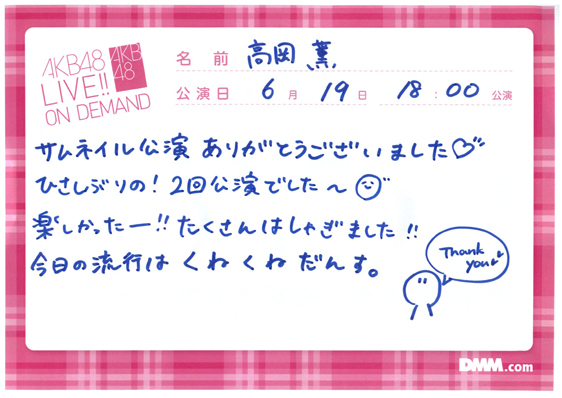 AKB48
LIVE!!
ON DEMAND
AKB
48
名前 高岡 薫
公演日 6月 19日 18:00 公演
サムネイル公演 ありがとうございました♡
ひさしぶりの！2回公演でした〜
楽しかったー!! たくさんはしゃぎました!!
今日の流行は くねくねだんす。
Thank
you♪
DMM.com